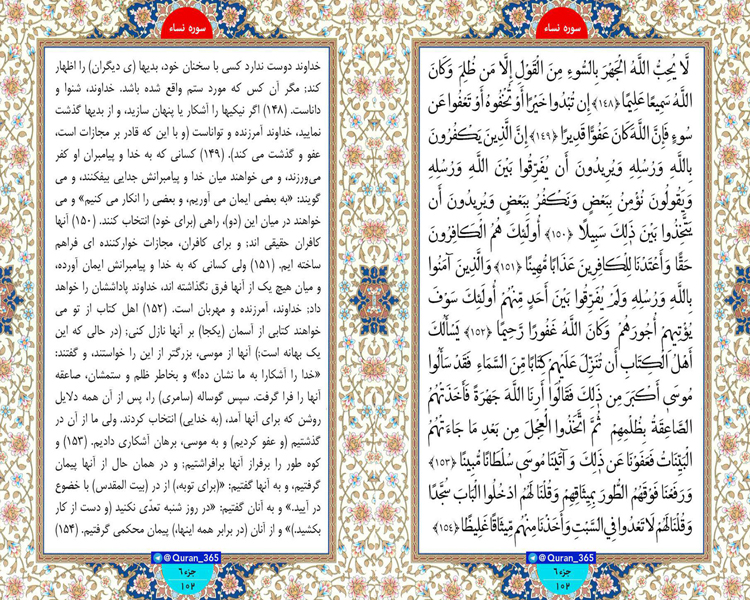 سوره نساء
لَّا يُحِبُّ اللَّهُ الْجَهْرَ بِالسُّوءِ مِنَ الْقَوْلِ إِلَّا مَن ظُلِمَ وَكَانَ
اللَّهُ سَمِيعًا عَلِيمًا ﴿۱۴۸﴾ إِن تُبْدُوا خَيْرًا أَوْ تُخْفُوهُ أَوْ تَعْفُوا عَن
سُوءٍ فَإِنَّ اللَّهَ كَانَ عَفُوًّا قَدِيرًا ﴿۱۴۹﴾ إِنَّ الَّذِينَ يَكْفُرُونَ
بِاللَّهِ وَرُسُلِهِ وَيُرِيدُونَ أَن يُفَرِّقُوا بَيْنَ اللَّهِ وَرُسُلِهِ
وَيَقُولُونَ نُؤْمِنُ بِبَعْضٍ وَنَكْفُرُ بِبَعْضٍ وَيُرِيدُونَ أَن
يَتَّخِذُوا بَيْنَ ذَٰلِكَ سَبِيلًا ﴿۱۵۰﴾ أُولَٰئِكَ هُمُ الْكَافِرُونَ
حَقًّا وَأَعْتَدْنَا لِلْكَافِرِينَ عَذَابًا مُّهِينًا ﴿۱۵۱﴾ وَالَّذِينَ آمَنُوا
بِاللَّهِ وَرُسُلِهِ وَلَمْ يُفَرِّقُوا بَيْنَ أَحَدٍ مِّنْهُمْ أُولَٰئِكَ سَوْفَ
يُؤْتِيهِمْ أُجُورَهُمْ وَكَانَ اللَّهُ غَفُورًا رَّحِيمًا ﴿۱۵۲﴾ يَسْأَلُكَ
أَهْلُ الْكِتَابِ أَن تُنَزِّلَ عَلَيْهِمْ كِتَابًا مِّنَ السَّمَاءِ فَقَدْ سَأَلُوا
مُوسَىٰ أَكْبَرَ مِن ذَٰلِكَ فَقَالُوا أَرِنَا اللَّهَ جَهْرَةً فَأَخَذَتْهُمُ
الصَّاعِقَةُ بِظُلْمِهِمْ ثُمَّ اتَّخَذُوا الْعِجْلَ مِن بَعْدِ مَا جَاءَتْهُمُ
الْبَيِّنَاتُ فَعَفَوْنَا عَن ذَٰلِكَ وَآتَيْنَا مُوسَىٰ سُلْطَانًا مُّبِينًا ﴿۱۵۳﴾
وَرَفَعْنَا فَوْقَهُمُ الطُّورَ بِمِيثَاقِهِمْ وَقُلْنَا لَهُمُ ادْخُلُوا الْبَابَ سُجَّدًا
وَقُلْنَا لَهُمْ لَا تَعْدُوا فِي السَّبْتِ وَأَخَذْنَا مِنْهُم مِّيثَاقًا غَلِيظًا ﴿۱۵۴﴾
@Quran_365
جزء ۶
۱۰۲
سوره نساء
خداوند دوست ندارد کسی با سخنان خود، بدیها (ی دیگران) را اظهار
کند; مگر آن کس که مورد ستم واقع شده باشد. خداوند، شنوا و
داناست. (۱۴۸) اگر نیکیها را آشکار یا پنهان سازید، و از بدیها گذشت
نمایید، خداوند آمرزنده و تواناست (و با این که قادر بر مجازات است،
عفو و گذشت می کند). (۱۴۹) کسانی که به خدا و پیامبران او کفر
می‌ورزند، و می خواهند میان خدا و پیامبرانش جدایی بیفکنند، و می
گویند: «به بعضی ایمان می آوریم، و بعضی را انکار می کنیم» و می
خواهند در میان این (دو)، راهی (برای خود) انتخاب کنند. (۱۵۰) آنها
کافران حقیقی اند; و برای کافران، مجازات خوارکننده ای فراهم
ساخته ایم. (۱۵۱) ولی کسانی که به خدا و پیامبرانش ایمان آورده،
و میان هیچ یک از آنها فرق نگذاشته اند، خداوند پاداششان را خواهد
داد; خداوند، آمرزنده و مهربان است. (۱۵۲) اهل کتاب از تو می
خواهند کتابی از آسمان (یکجا) بر آنها نازل کنی; (در حالی که این
یک بهانه است;) آنها از موسی، بزرگتر از این را خواستند، و گفتند:
«خدا را آشکارا به ما نشان ده!» و بخاطر ظلم و ستمشان، صاعقه
آنها را فرا گرفت. سپس گوساله (سامری) را، پس از آن همه دلایل
روشن که برای آنها آمد، (به خدایی) انتخاب کردند. ولی ما از آن در
گذشتیم (و عفو کردیم) و به موسی، برهان آشکاری دادیم. (۱۵۳) و
کوه طور را برفراز آنها برافراشتیم; و در همان حال از آنها پیمان
گرفتیم، و به آنها گفتیم: «(برای توبه،) از در (بیت المقدس) با خضوع
در آیید.» و به آنان گفتیم: «در روز شنبه تعدّی نکنید (و دست از کار
بکشید.)» و از آنان (در برابر همه اینها،) پیمان محکمی گرفتیم. (۱۵۴)
@Quran_365
جزء ۶
۱۰۲